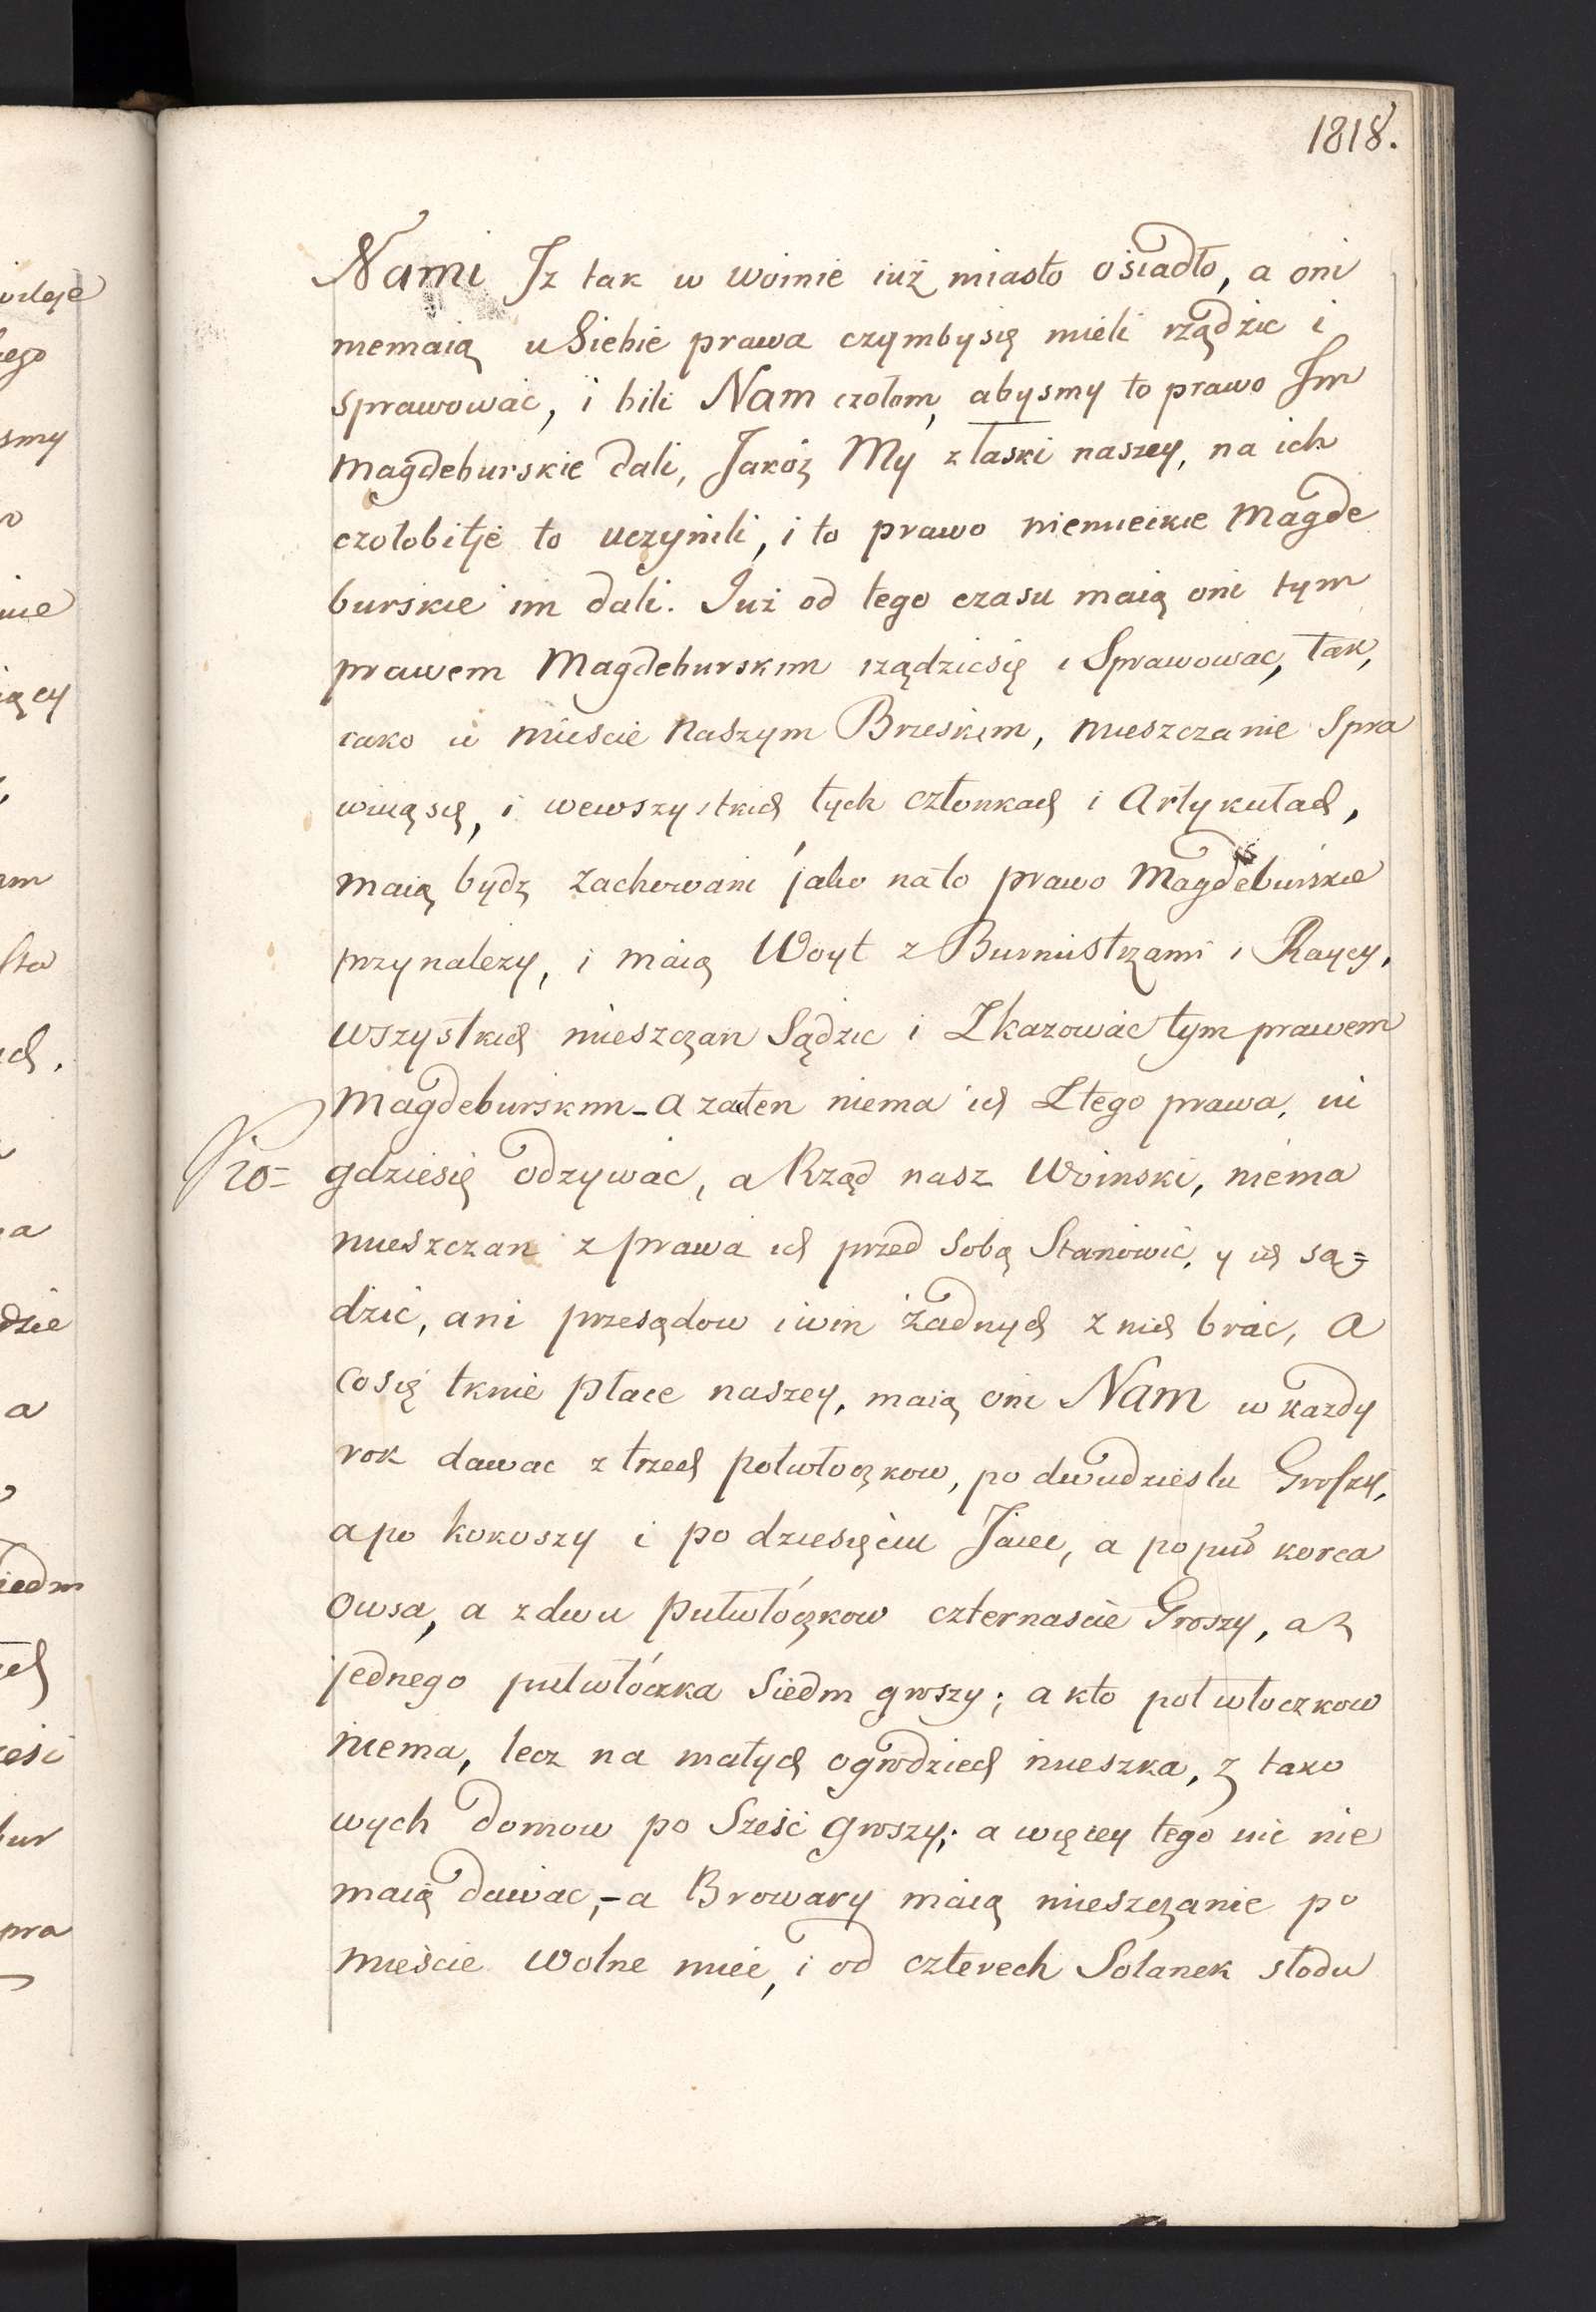 1818.
Nami Iz tak w woinie iuż miasto osiadło, a oni
niemaią u Siebie prawa czymbysię mieli rządzic i
sprawować, i bili Nam czołom, abysmy to prawo Im
Magdeburskie dali, Jakóż My z łaski naszey, na ich
czołobitje to uczynili, i to prawo niemieckie Magde
burskie im dali. Już od tego czasu maią oni tym
prawem Magdeburskim rządzicsię i Sprawować, tak,
iako w mieście Naszym Brzeskim, mieszczanie Spra
wuią się, i wewszystkich tych członkach i Artykułach,
maią bydz zachowani jako nato prawo Magdeburskie
przynależy, i maią Woyt z Burmistrzami i Raycy,
wszystkich mieszczan Sądzic i Zkazować tym prawem
Magdeburskim - a zaten niema ich Z tego prawa, ni
gdziesię odzywać, a Rząd nasz Woinski, niema
mieszczan z prawa ich przed sobą Stanowić, y ich są=
dzić, ani przesądow i win żadnych z nich brać, a
co się tknie płace naszey, maią oni Nam w każdy
rok dawac z trzech połwłoczkow, po dwudziestu Groszy,
a po kokoszy i po dziesięciu Jaiec, a po puł korca
owsa, a z dwu pułwłóczkow czternascie Groszy, a z
jednego pułwłóczka Siedm groszy; a kto połwłoczkow
niema, lecz na małych ogrodziech mieszka, z tako
wych domow po Sześć groszy; a więcey tego nic nie
maią dawac, - a Browary maią mieszczanie po
mieście wolne mieć, i od czterech Solanek słodu